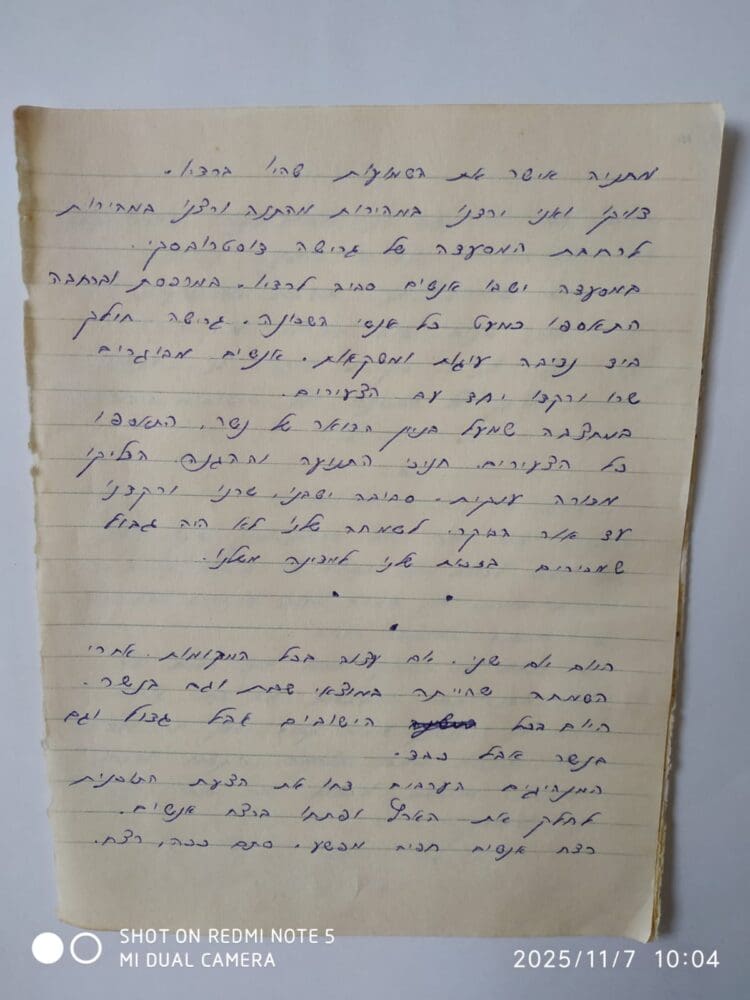 מתניה אישר את השמועות שהיו ברדיו.
צויקי ואני ירדנו במהירות מהתנה ורצנו במהירות
לרחבת המסעדה של גרישה דוסטרובסקי.
במסעדה ישבו אנשים סביב לרדיו. במרפסת וברחבה
התאספו כמעט כל אנשי השכונה. גרישה חילק
ביד נדיבה עוגות ומשקאות. אנשים מבוגרים
שרו ורקדו יחד עם הצעירים.
במחצבה שמעל בניין הדואר של נשר, התאספו
כל הצעירים. חניכי התנועה וההגנה הדליקו
מדורה ענקית. סביבה ישבנו, שרנו ורקדנו
עד אור הבקר. לשמחה שלנו לא היה גבול
שמכירים בזכות שלנו למדינה משלנו.
היום יום שני. יום עצוב בכל המקומות. אחרי
השמחה שהייתה במוצאי שבת וגם בנשר.
היום בכל הישובים אבל גדול וגם
בנשר אבל כבד.
המנהיגים הערבים דחו את הצעת התוכנית
לחלק את הארץ ופתחו ברצח אנשים.
רצח אנשים חפים מפשע. סתם ככה, רצח.
SHOT ON REDMI NOTE 5
MI DUAL CAMERA
2025/11/7 10:04